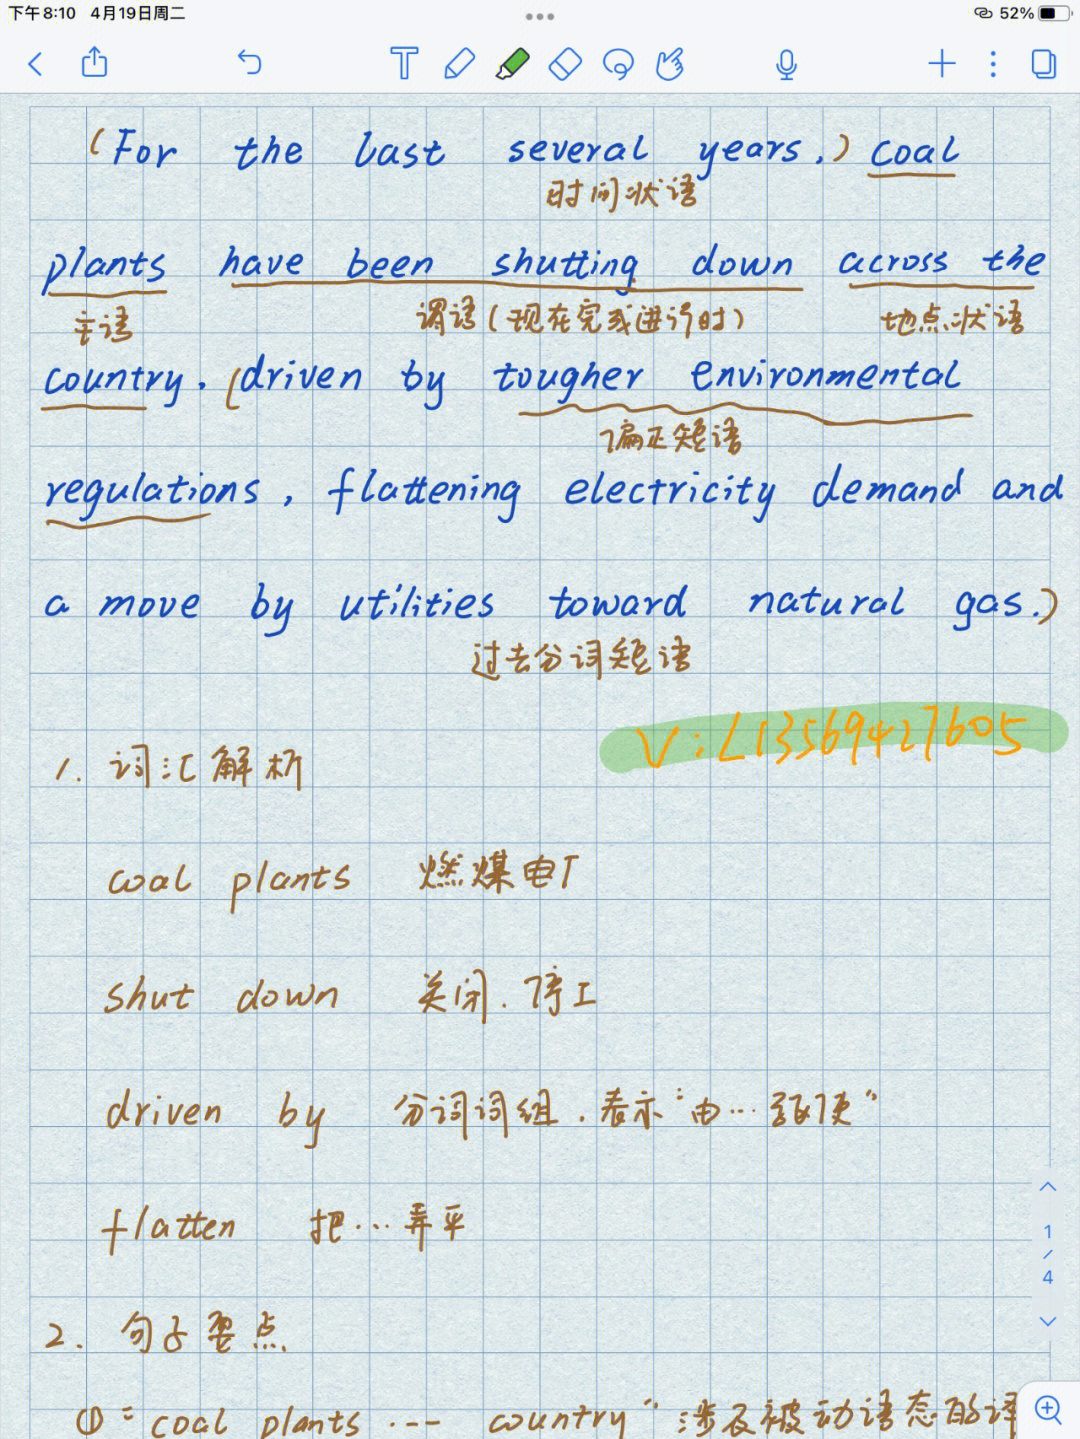 下午8:10 4月19日周二
52%
(For the last several years,) coal
时间状语
plants have been shutting down across the
主语 谓语(现在完成进行时) 地点状语
country, (driven by tougher environmental
偏正短语
regulations, flattening electricity demand and
a move by utilities toward natural gas.)
过去分词短语
V:L13569427605
1. 词汇解析
coal plants 燃煤电厂
shut down 关闭,停工
driven by 分词词组,表示"由…驱使"
flatten 把…弄平
1
/
4
2. 句子要点
① "coal plants … country" 涉及被动语态的译